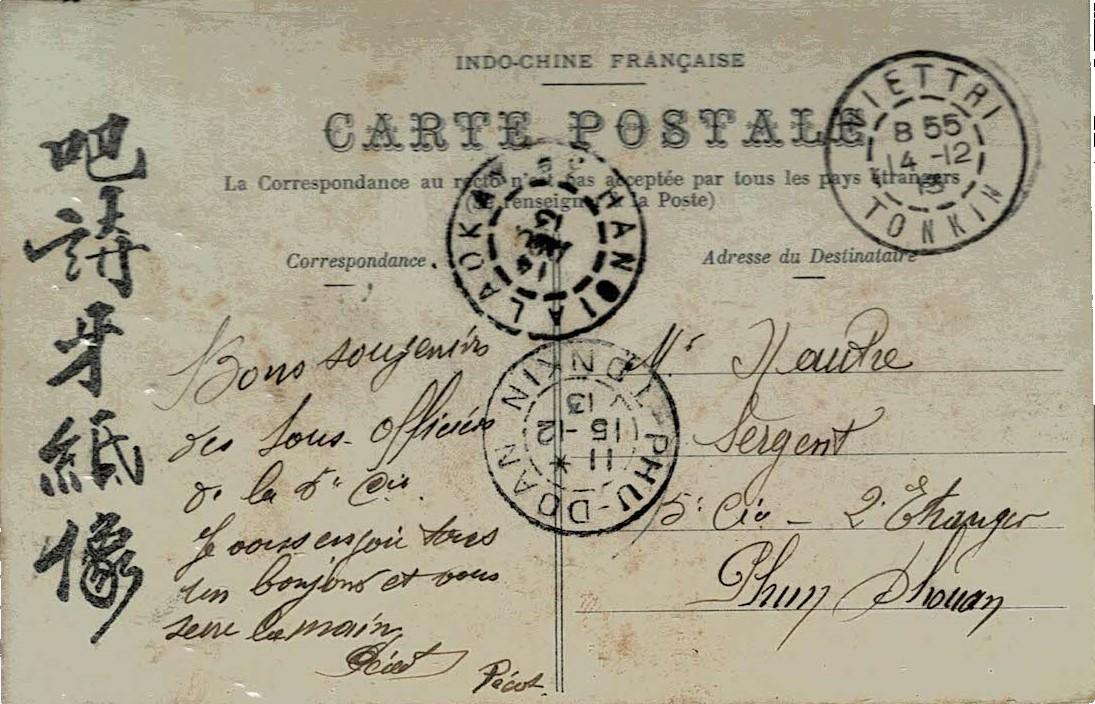 INDO-CHINE FRANÇAISE
CARTE POSTALE
La Correspondance au recto n'est pas acceptée par tous les pays étrangers
(Se renseigner à la Poste)
Correspondance
Adresse du Destinataire
VIETTRI
8 55
14 -12
13
TONKIN
HANOI A LAOKAY
PHU-DOAN TONKIN
11
15 -12
13
吧
請
牙
紙
像
Bons souvenirs
des Sous-Officiers
de la
Cie.
Je vous envoie tous
un bonjour et vous
serre la main
Pécot
Mr
Sergent
5e Cie - 2e Etranger
Phu